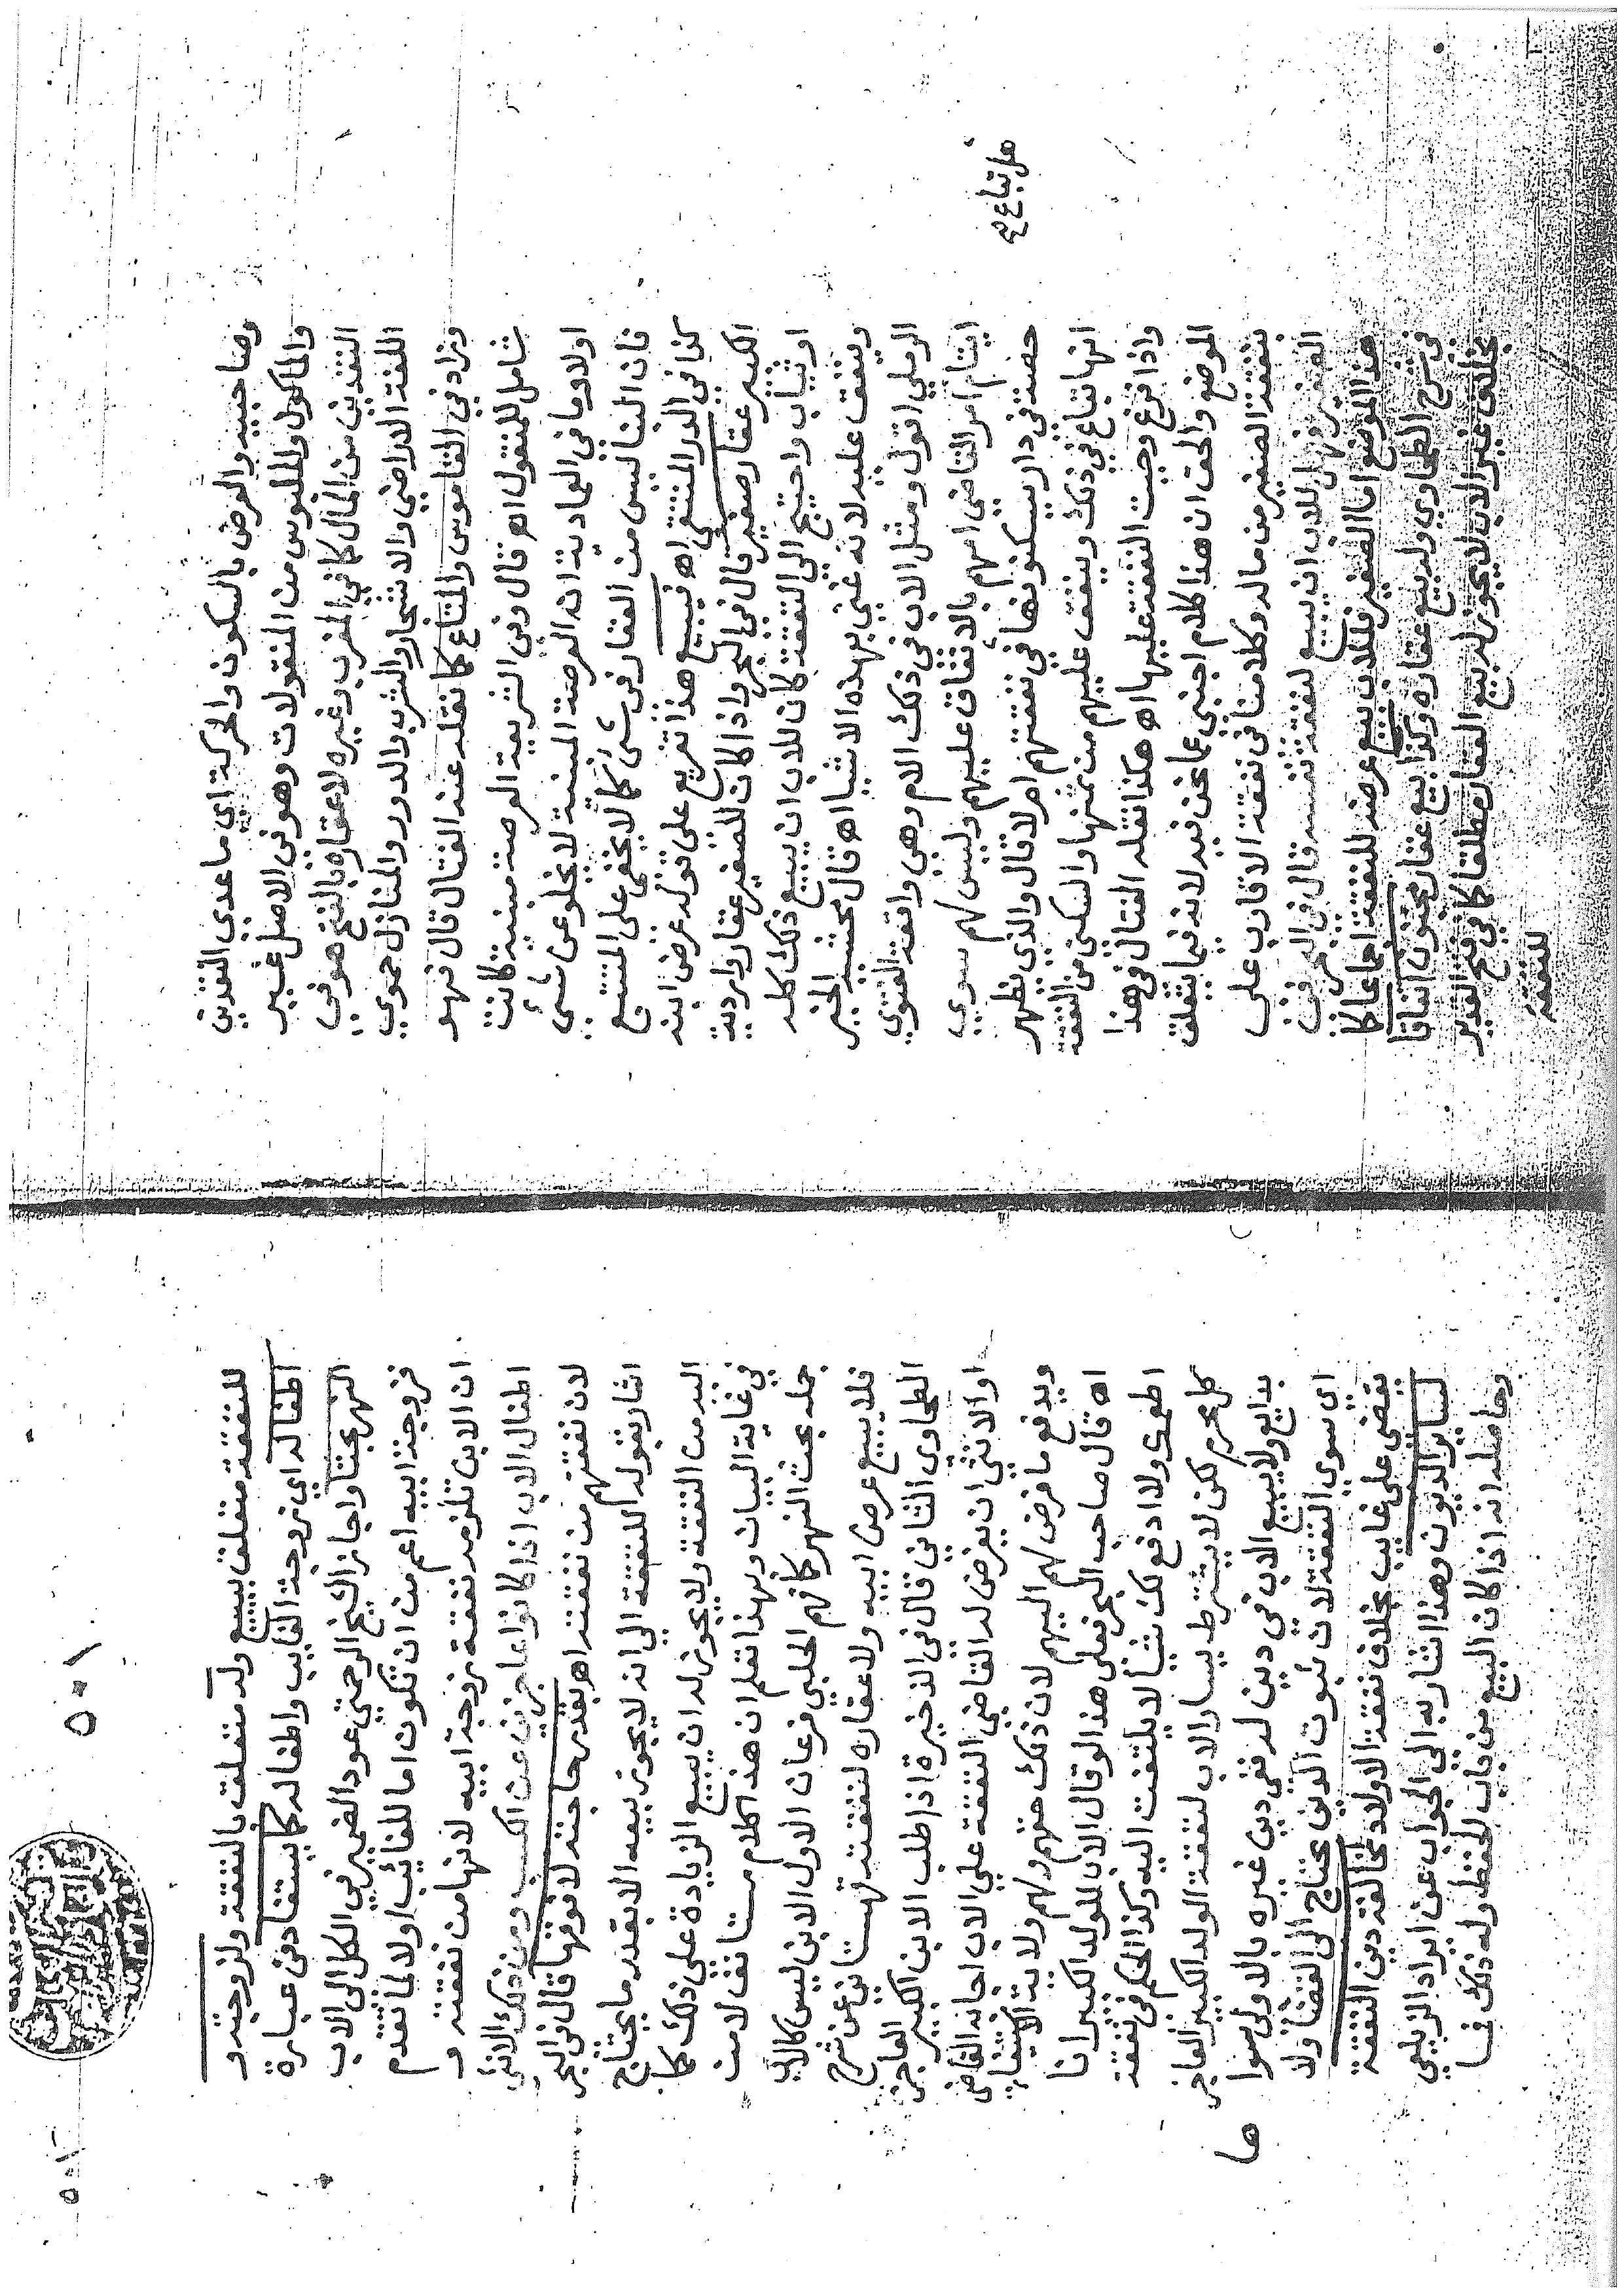 وصاحبيه والعرض بالسكون والحركة اي ما عدي النقدين
والماكول والملبوس من المنقولات وهو في الاصل غير
النقدين من المال كما في المغرب وغيره لا عقاره بالفتح هو في
اللغة الاراضي والاشجار والشرب والدور والمنازل حموي
وزاد في القاموس والمتاع كما نقله عند القتال قال فهو
شامل للمنقول اه قال وفي الشريعة العرصة مبنية كانت
اولا وما في العمادية انه العرصة المبنية لا يخلو عن شئ
فان البنا ليس من العقار في شئ كما لا يخفى على المتتبع
كذا في الدر المنتقى اه فيبيع هذا تفريع على قوله عرض ابنه
الكبير عقار صغير قال في البحر واذا كان للصغير عقار او اردية
او ثياب واحتيج الى النفقة كان للاب ان يبيع ذلك كله
وينفق عليه لانه غني بهذه الاشيا اه قال محشيه الخير
الرملي اقول ومثل الاب في ذلك الام وهي واقعة الفتوي
ايتام أمر القاضي امهم بالانفاق عليهم وليس لهم سوي
حصة في دار يسكنونها في نفقتهم ام لا قال والذي يظهر
هل تباع صح
انها تباع في ذلك وينفق عليهم من ثمنها والسكني من النفقة
واذا فرغ وجبت النفقة عليها اه هكذا نقله القتال في هذا
الموضع والحق ان هذا كلام اجنبي عما نحن فيه لانه فيما يتعلق
بنفقة الصغير من ماله وكلامنا في نفقة الاقارب على
الفقير فهل للاب ان يبيع لنفقة نفسه قال في البحر في
هذا الموضع اما الصغير فللاب بيع عرضه للنفقة اجماعا كما
في شرح الطحاوي وله بيع عقاره وكذا بيع عقار مجنون اتفاقا
بخلاف غير الاب لا يجوز له بيع العقار مطلقا كما في فتح القدير
للنفقة
٥٠١
٥٠١
للنفقة متعلق ببيع وله متعلق بالنفقة ولزوجته و
اطفاله اي زوجة الغايب واطفاله كما يستفاد من عبارة
النهر بحثا واجاز الشيخ الرحمتي عود الضمير في الكل الى الاب
فزوجة ابيه اعم من ان تكون اما للغائب او لا لما تقدم
ان الابن تلزمه نفقة زوجة ابيه لانها من نفقته و
اطفال الاب اذا كانوا عاجزين عن الكسب ومن ذلك الانثى
لان نفقتهم من نفقته اه بقدر حاجته لا فوقها قال في البحر
اشار بقوله للنفقة الى انه لا يجوز بيعه الا بقدر ما يحتاج
اليه من النفقة ولا يجوز له ان يبيع الزيادة على ذلك كما
في غاية البيان وبهذا تعلم ان هذا كلام مستانف لا من
جملة بحث النهر كما فهم الحلبي فرعان الاول الابن ليس كالاب
فلا يبيع عرض ابيه ولا عقاره لنفقته قهستاني عن شرح
الطحاوي الثاني قال في الذخيرة اذا طلب الابن الكبير العاجز
او الانثى ان يفرض له القاضي النفقة على الاب اجابه القاضي
ويدفع ما فرض لهم اليهم لان ذلك حقهم ولهم ولاية الاستيفاء
اه قال صاحب البحر فعلى هذا لو قال الاب للولد الكبير انا
اطعمك ولا ادفع لك شيأ لا يلتفت اليه وكذا الحكم في نفقة
كل محرم لكن لا يشترط يسار الاب لنفقة الولد الكبير العاجز
بدايع ولا يبيع الاب في دين له ففي دين غيره بالاولى سواها
اي سوي النفقة لان ثبوت الدين يحتاج الى القضأ ولا
يقضي على غايب بخلاف نفقة الاولاد مخالفة دين النفقة
لساير الديون وهذا اشار به الى الجواب عن ايراد الزيلعي
وحاصله انه اذا كان البيع من باب الحفظ وله ذلك فما